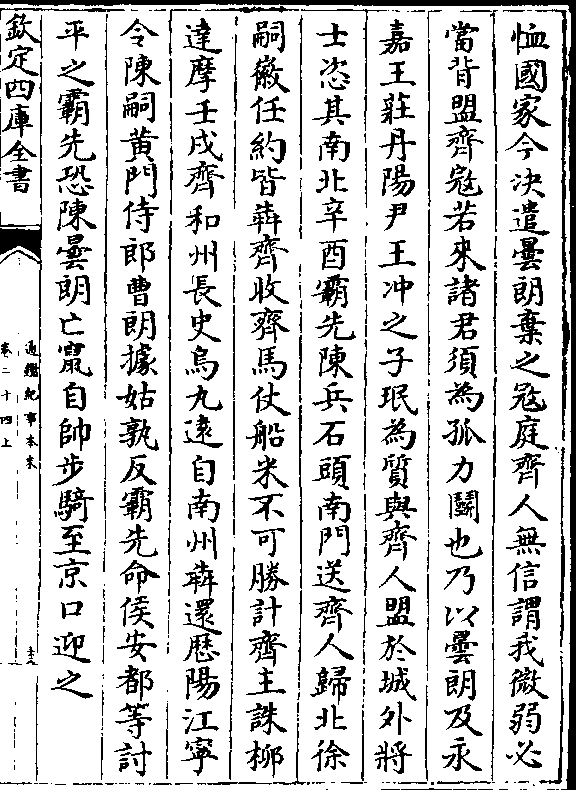 恤國家今決遣曇朗棄之冦庭齊人無信謂我微弱必
當背盟齊冦若來諸君須為孤力鬭也乃以曇朗及永
嘉王莊丹陽尹王沖之子珉為質與齊人盟於城外將
士恣其南北辛酉霸先陳兵石頭南門送齊人歸北徐
嗣徽任約皆犇齊收齊馬仗船米不可勝計齊主誅柳
達摩壬戌齊和州長史烏丸遠自南州犇還厯陽江寧
令陳嗣黄門侍郎曹朗據姑孰反霸先命侯安都等討
平之霸先恐陳曇朗亡竄自帥步騎至京口迎之
欽定四庫全書
通鑑紀事本末
卷二十四上